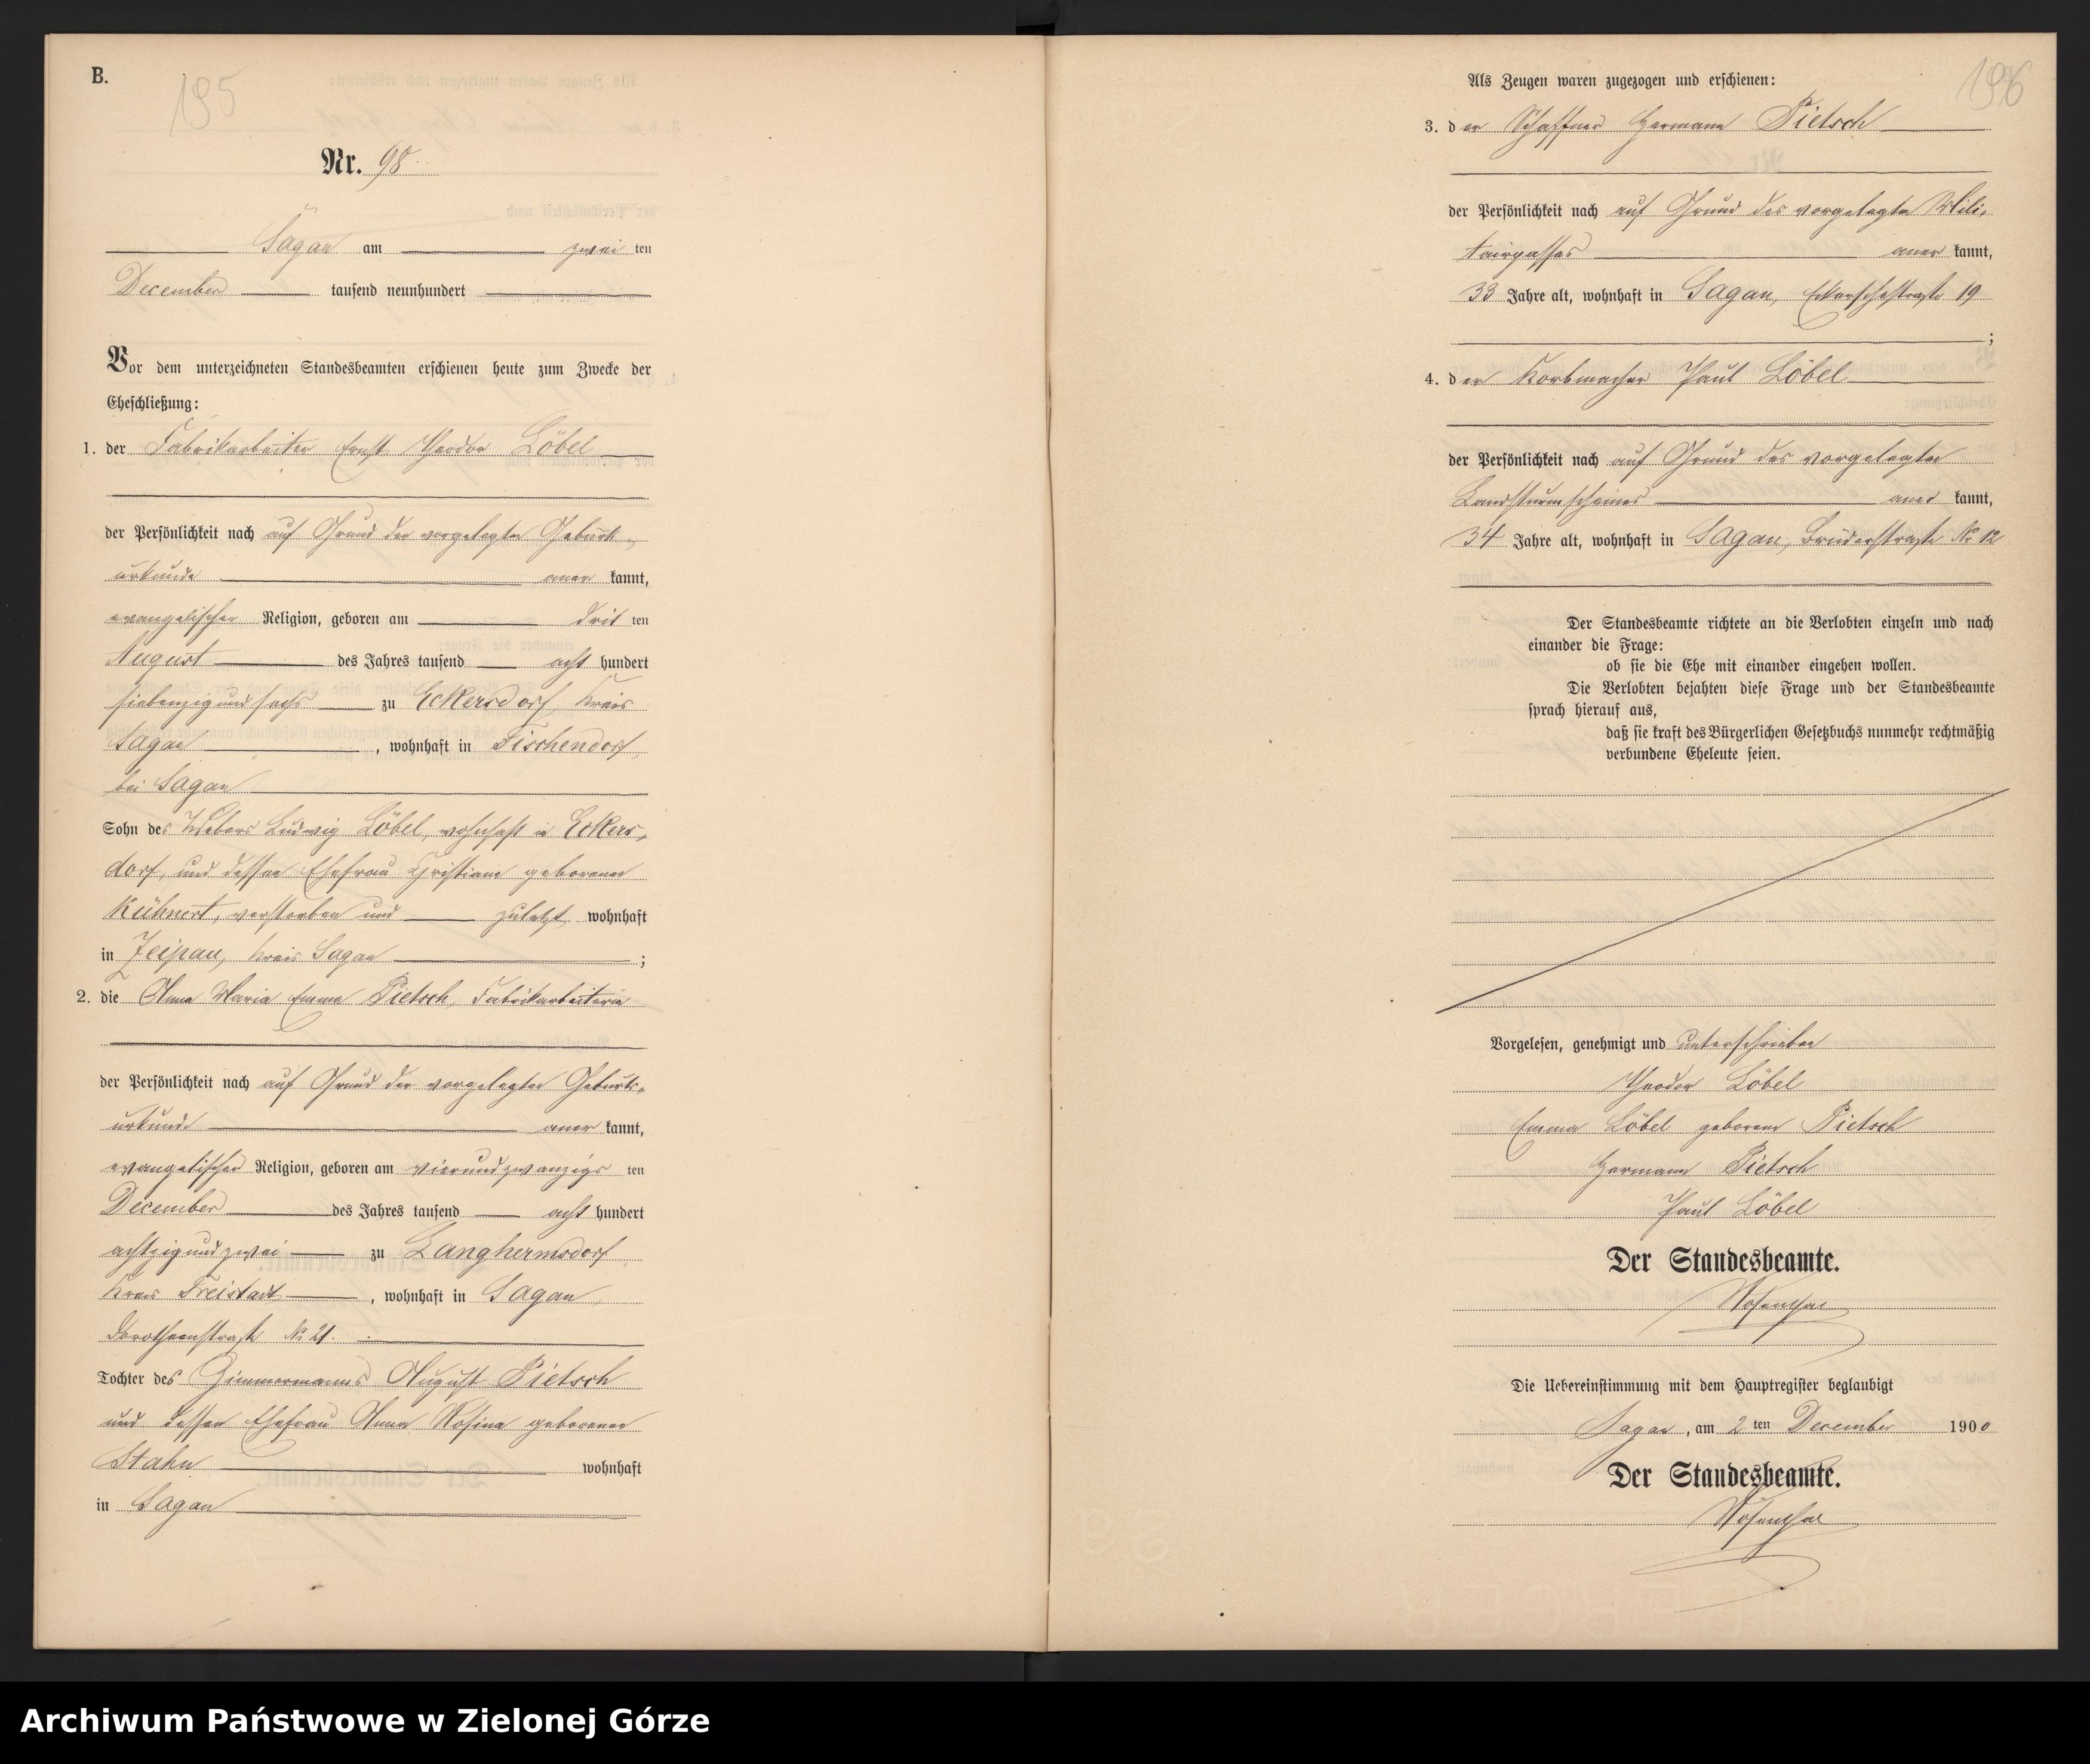 B.
195
Nr. 98
Sagan am zwei ten
December tausend neunhundert
Vor dem unterzeichneten Standesbeamten erschienen heute zum Zwecke der
Eheschließung:
1. der Fabrikarbeiter Ernst Theodor Löbel
der Persönlichkeit nach auf Grund der vorgelegten Geburts-
urkunde aner kannt,
evangelischer Religion, geboren am drit ten
August des Jahres tausend acht hundert
siebenzig und sechs zu Eckersdorf, Kreis
Sagan, wohnhaft in Fischendorf
bei Sagan
Sohn des Webers Ludwig Löbel, wohnhaft in Eckers-
dorf, und dessen Ehefrau Christiane geborenen
Kühnert, verstorben und zuletzt wohnhaft
in Zeipau, Kreis Sagan ;
2. die Anna Maria Emma Pietsch, Fabrikarbeiterin
der Persönlichkeit nach auf Grund der vorgelegten Geburts-
urkunde aner kannt,
evangelischer Religion, geboren am vierundzwanzigs ten
December des Jahres tausend acht hundert
achtzig und zwei zu Langhermsdorf
Kreis Freistadt, wohnhaft in Sagan,
Dorotheenstraße No 21.
Tochter des Zimmermanns August Pietsch
und dessen Ehefrau Anna Rosina geborenen
Stahn wohnhaft
in Sagan
196
Als Zeugen waren zugezogen und erschienen:
3. der Schaffner Hermann Pietsch
der Persönlichkeit nach auf Grund des vorgelegten Mili-
tairpasses aner kannt,
33 Jahre alt, wohnhaft in Sagan, 19
;
4. der Korbmacher Paul Löbel
der Persönlichkeit nach auf Grund des vorgelegten
Landsturmscheines aner kannt,
34 Jahre alt, wohnhaft in Sagan, Brüderstraße No 12
Der Standesbeamte richtete an die Verlobten einzeln und nach
einander die Frage:
ob sie die Ehe mit einander eingehen wollen.
Die Verlobten bejahten diese Frage und der Standesbeamte
sprach hierauf aus,
daß sie kraft des Bürgerlichen Gesetzbuchs nunmehr rechtmäßig
verbundene Eheleute seien.
Vorgelesen, genehmigt und unterschrieben
Theodor Löbel
Emma Löbel geborene Pietsch
Hermann Pietsch
Paul Löbel
Der Standesbeamte.
Rosenthal
Die Uebereinstimmung mit dem Hauptregister beglaubigt
Sagan, am 2 ten December 1900
Der Standesbeamte.
Rosenthal
Archiwum Państwowe w Zielonej Górze